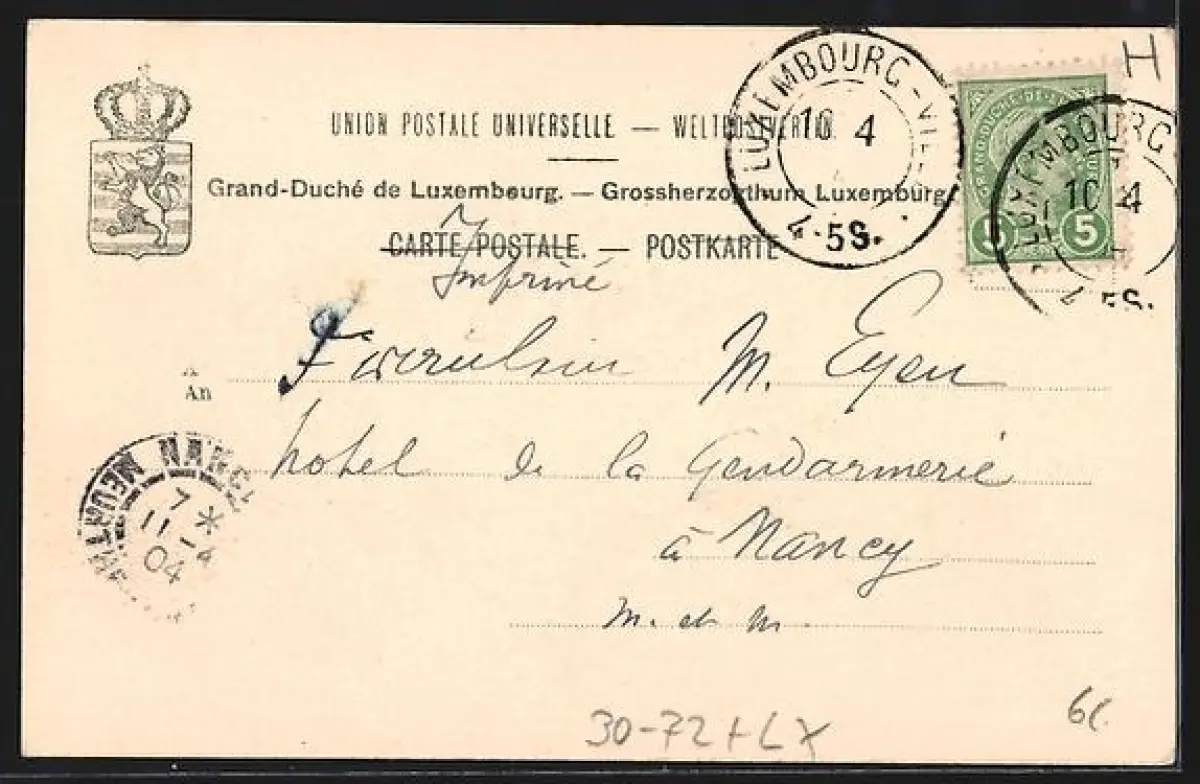 UNION POSTALE UNIVERSELLE — WELTPOSTVEREIN
Grand-Duché de Luxembourg. — Grossherzogthum Luxemburg
CARTE POSTALE. — POSTKARTE
Imprimé
LUXEMBOURG-VILLE
10 4
4-5S.
GRAND DUCHÉ-DE-
5 5
LUXEMBOURG
10 4
4-5S.
H
Fräulein M. Eyen
An
hotel de la Gendarmerie
à Nancy
M. et M.
NANCY
MEURTHE
7
11 - 4
04
30-72+LX
6.